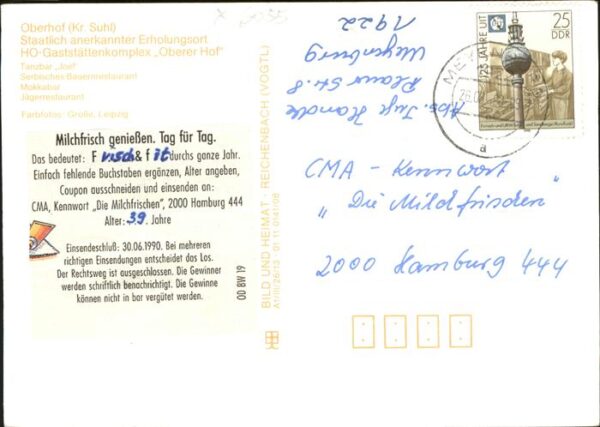 Oberhof (Kr. Suhl)
Staatlich anerkannter Erholungsort
HO-Gaststättenkomplex „Oberer Hof"
Tanzbar „Joel"
Serbisches Bauernrestaurant
Mokkabar
Jägerrestaurant
Farbfotos: Große, Leipzig
Milchfrisch genießen. Tag für Tag.
Das bedeutet: F risch & f it durchs ganze Jahr.
Einfach fehlende Buchstaben ergänzen, Alter angeben,
Coupon ausschneiden und einsenden an:
CMA, Kennwort „Die Milchfrischen", 2000 Hamburg 444
Alter: 39. Jahre
Einsendeschluß: 30.06.1990. Bei mehreren
richtigen Einsendungen entscheidet das Los.
Der Rechtsweg ist ausgeschlossen. Die Gewinner
werden schriftlich benachrichtigt. Die Gewinne
können nicht in bar vergütet werden.
OD BW 19
BILD UND HEIMAT · REICHENBACH (VOGTL)
Abs. Inge
Str. 8
Meyenburg
1922
125 JAHRE UIT
25
DDR
a
CMA - Kennwort
„Die Milchfrischen"
2000 Hamburg 444